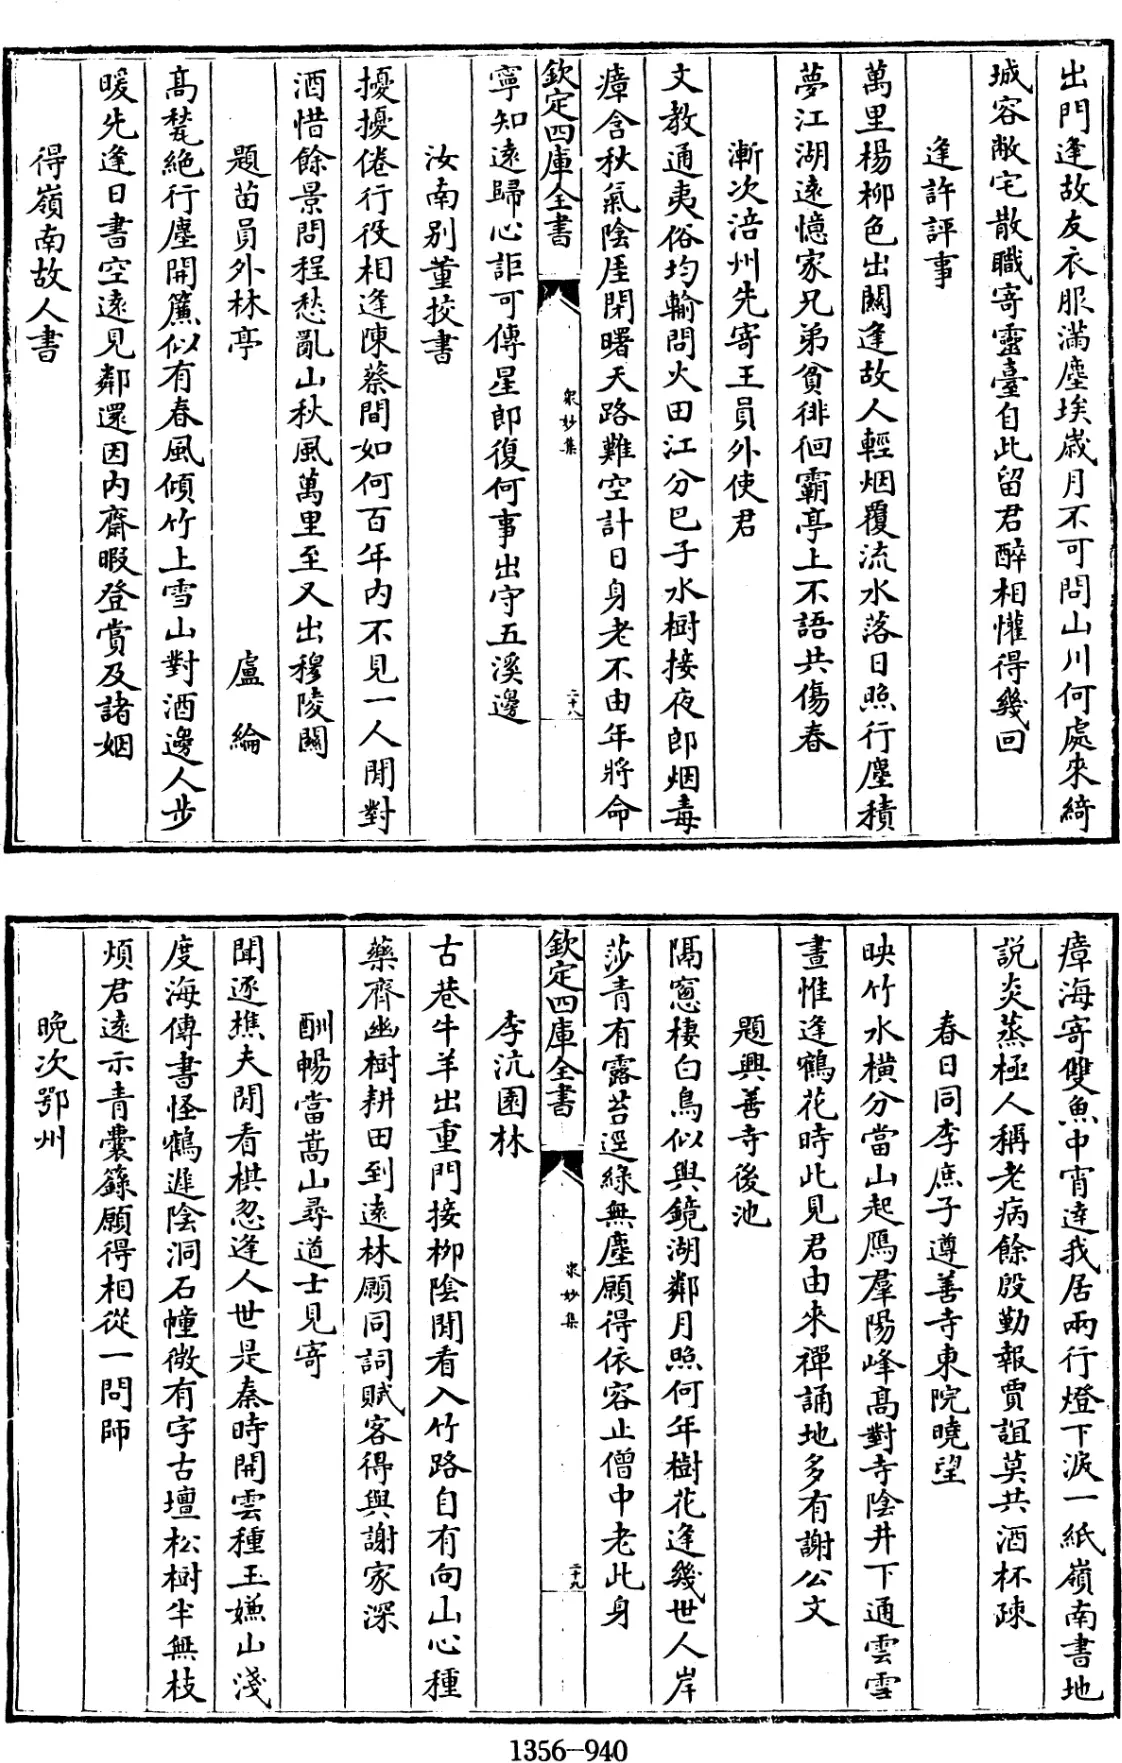 出門逢故友衣服滿塵埃歲月不可問山川何處來綺
城容敝宅散職寄靈臺自此留君醉相懽得幾回
逢許評事
萬里楊柳色出關逢故人輕烟覆流水落日照行塵積
夢江湖遠憶家兄弟貧徘徊霸亭上不語共傷春
漸次涪州先寄王員外使君
文教通夷俗均輸問火田江分巴子水樹接夜郎烟毒
瘴含秋氣陰厓閉曙天路難空計日身老不由年將命
欽定四庫全書
衆妙集
二十八
寧知遠歸心詎可傳星郎復何事出守五溪邊
汝南别董挍書
擾擾倦行役相逢陳蔡間如何百年內不見一人閒對
酒惜餘景問程愁亂山秋風萬里至又出穆陵關
題苗員外林亭
盧綸
髙甃絶行塵開簾似有春風傾竹上雪山對酒邊人步
暖先逢日書空遠見鄰還因内齋暇登賞及諸姻
得嶺南故人書
瘴海寄雙魚中宵達我居兩行燈下淚一紙嶺南書地
說炎蒸極人稱老病餘殷勤報賈誼莫共酒杯疎
春日同李庶子遵善寺東院曉望
映竹水横分當山起鴈羣陽峰髙對寺陰井下通雲雪
晝惟逢鶴花時此見君由來禪誦地多有謝公文
題興善寺後池
隔窓棲白鳥似與鏡湖鄰月照何年樹花逢幾世人岸
莎青有露苔逕綠無塵願得依容止僧中老此身
欽定四庫全書
衆妙集
二十九
李沆園林
古巷牛羊出重門接柳陰閒看入竹路自有向山心種
藥齊幽樹耕田到遠林願同詞賦客得與謝家深
酬暢當嵩山尋道士見寄
聞逐樵夫閒看棋忽逢人世是秦時開雲種玉嫌山淺
度海傳書怪鶴遲陰洞石幢微有字古壇松樹半無枝
煩君遠示青囊籙願得相從一問師
晚次鄂州
1356—940